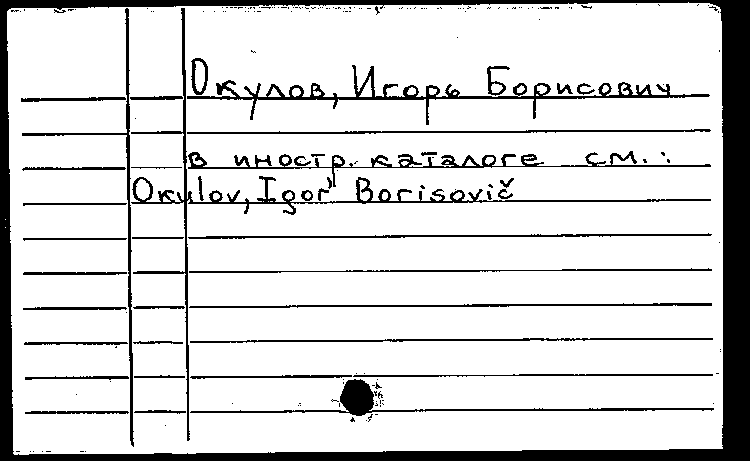 Окулов, Игорь Борисович
в иностр. каталоге см.:
Okulov, Igor' Borisovič